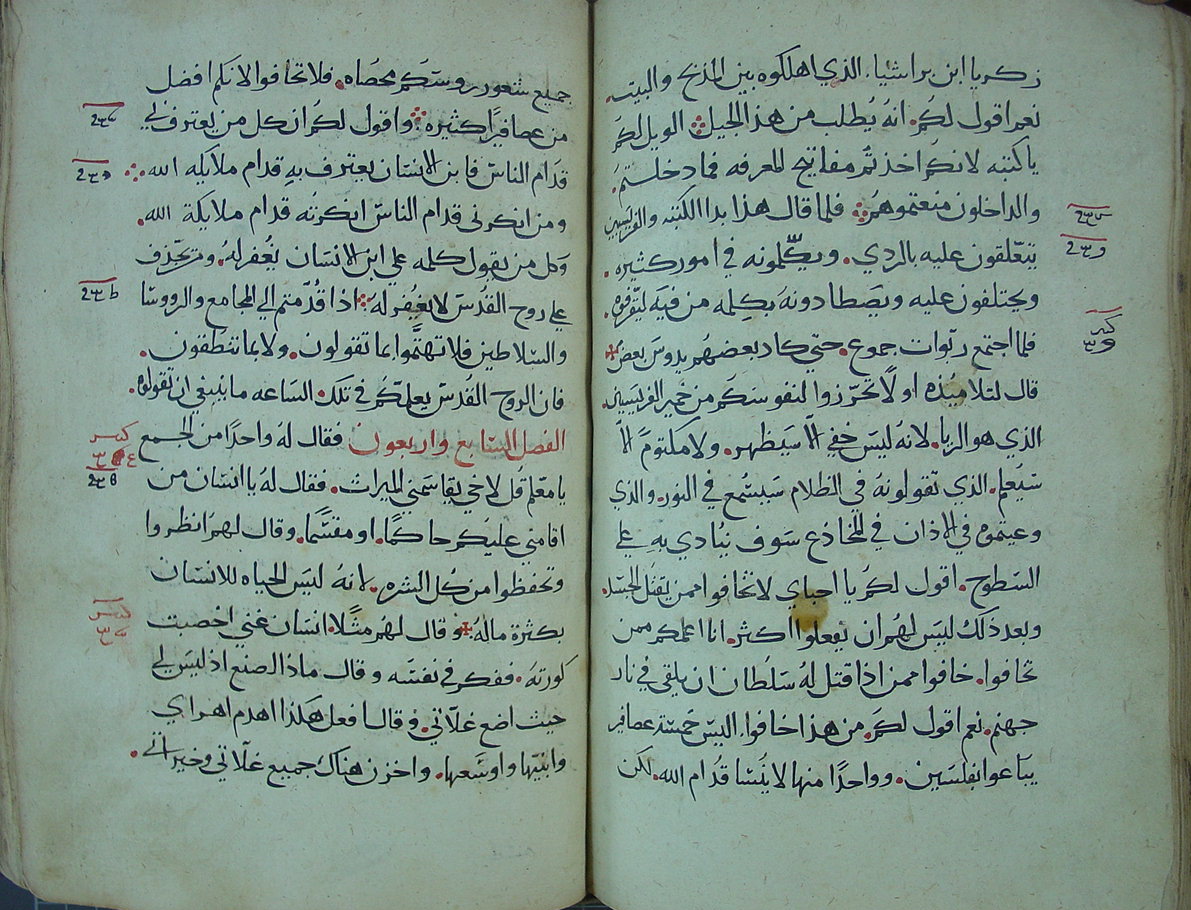 زكريا ابن براشيا. الذي اهلكوه بين المذبح والبيت.
نعم اقول لكم. انه يُطلب من هذا الجيل ܀ الويل لكم
ياكتبه لانكم اخذتم مفاتيح المعرفه فما دخلتم.
والداخلون منعتموهم ܀ فلما قال هذا بدا الكتبه والفريسيين
يتعلقون عليه بالردي. ويكلمونه في امور كثيره.
ويحتلفون عليه ويصطادونه بكلمه من فيه ليقرفوه.
فلما اجتمع ربوات جموع. حتي كاد بعضهم يدوس بعض
قال لتلاميذه اولًا تحرزوا لنفوسكم من خمير الفريسيين.
الذي هو الريا. لانه ليس خفي الا سيظهر. ولا مكتومً الا
سيُعلم. الذي تقولونه في الظلام سيسُمع في النور. والذي
وعيتموه في الاذان في المخاذع سوف يُنادي به علي
السطوح. اقول لكم يا احباي لا تخافوا ممن يقتل الجسد.
وبعد ذلك ليس لهم ان يفعلوا اكثر. انا اعلمكم ممن
تخافوا. خافوا ممن اذا قتل له سلطان ان يلقي في نار
جهنم. نعم اقول لكم. من هذا خافوا. اليس خمسة عصافير
يباعوا بفلسين. وواحدًا منها لا يُنسا قدام الله. لكن
جميع شعور روسكم محصاه. فلا تخافوا لانكم افضل
من عصافيرًا كثيره ܀ واقول لكم ان كل من يعترف بي
قدام الناس فابن الانسان يعترف به قدام ملايكه الله.
ومن انكرني قدام الناس انكرته قدام ملايكة الله.
وكل من يقول كلمه علي ابن الانسان يُغفر له. ومن يجذف
علي روح القدس لا يغفر له ܀ اذا قُدمتم الي المجامع والروسا
والسلاطين فلا تهتموا بما تقولون. ولا بما تنطقون.
فان الروح القدس يعلمكم في تلك الساعه ما ينبغي ان تقولوه.
الفصل السابع واربعون فقال له واحدًا من الجمع
يا معلم قُل لاخي يقاسمني الميراث. فقال له يا انسان من
اقامني عليكم حاكمًا. او مقسمًا. وقال لهم انظروا
وتحفظوا من كل الشره. لانه ليس الحياه للانسان
بكثرة ماله. وقال لهم مثلًا. انسان غني اخصبت
كورته. ففكر في نفسه وقال ماذا اصنع اذ ليس لي
حيث اضع غلاتي. وقال افعل هكذا اهدم اهراي
وابنيها واوسعها. واخزن هناك جميع غلاتي وخيراتي.